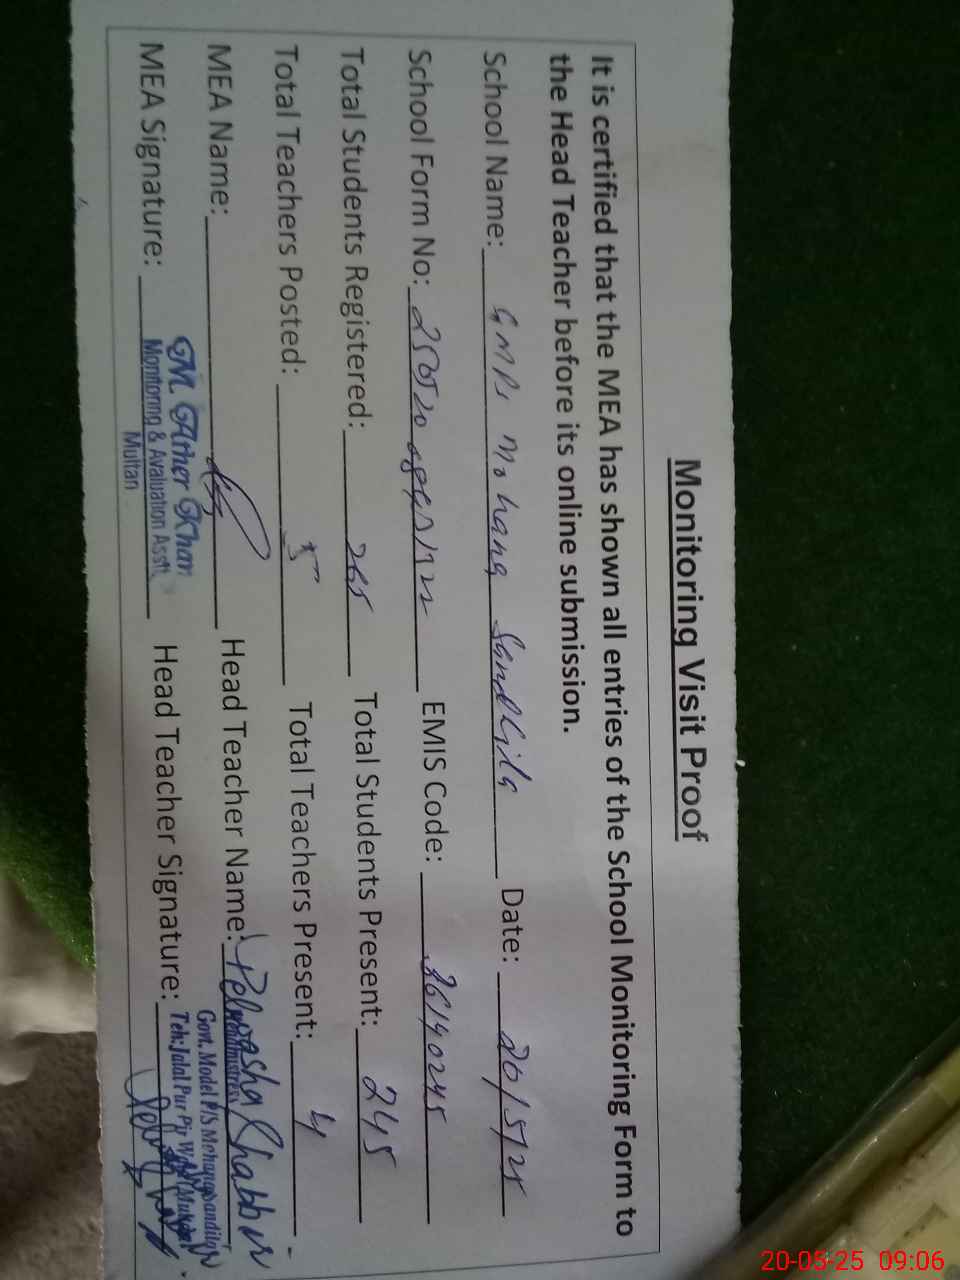 Monitoring Visit Proof
It is certified that the MEA has shown all entries of the School Monitoring Form to
the Head Teacher before its online submission.
School Name: GMPS Mohana Sandhila Date: 20/5/25
School Form No: EMIS Code: 36140245
Total Students Registered: 265 Total Students Present: 245
Total Teachers Posted: 5 Total Teachers Present: 4
MEA Name: Head Teacher Name: Palwasha Shabbir
MEA Signature: Head Teacher Signature:
M. Ather Khan
Monitoring & Evaluation Asstt.
Multan
Headmistress
Govt. Model P/S
Teh: Jalal Pur Pir Wala (Multan)
20-05-25 09:06